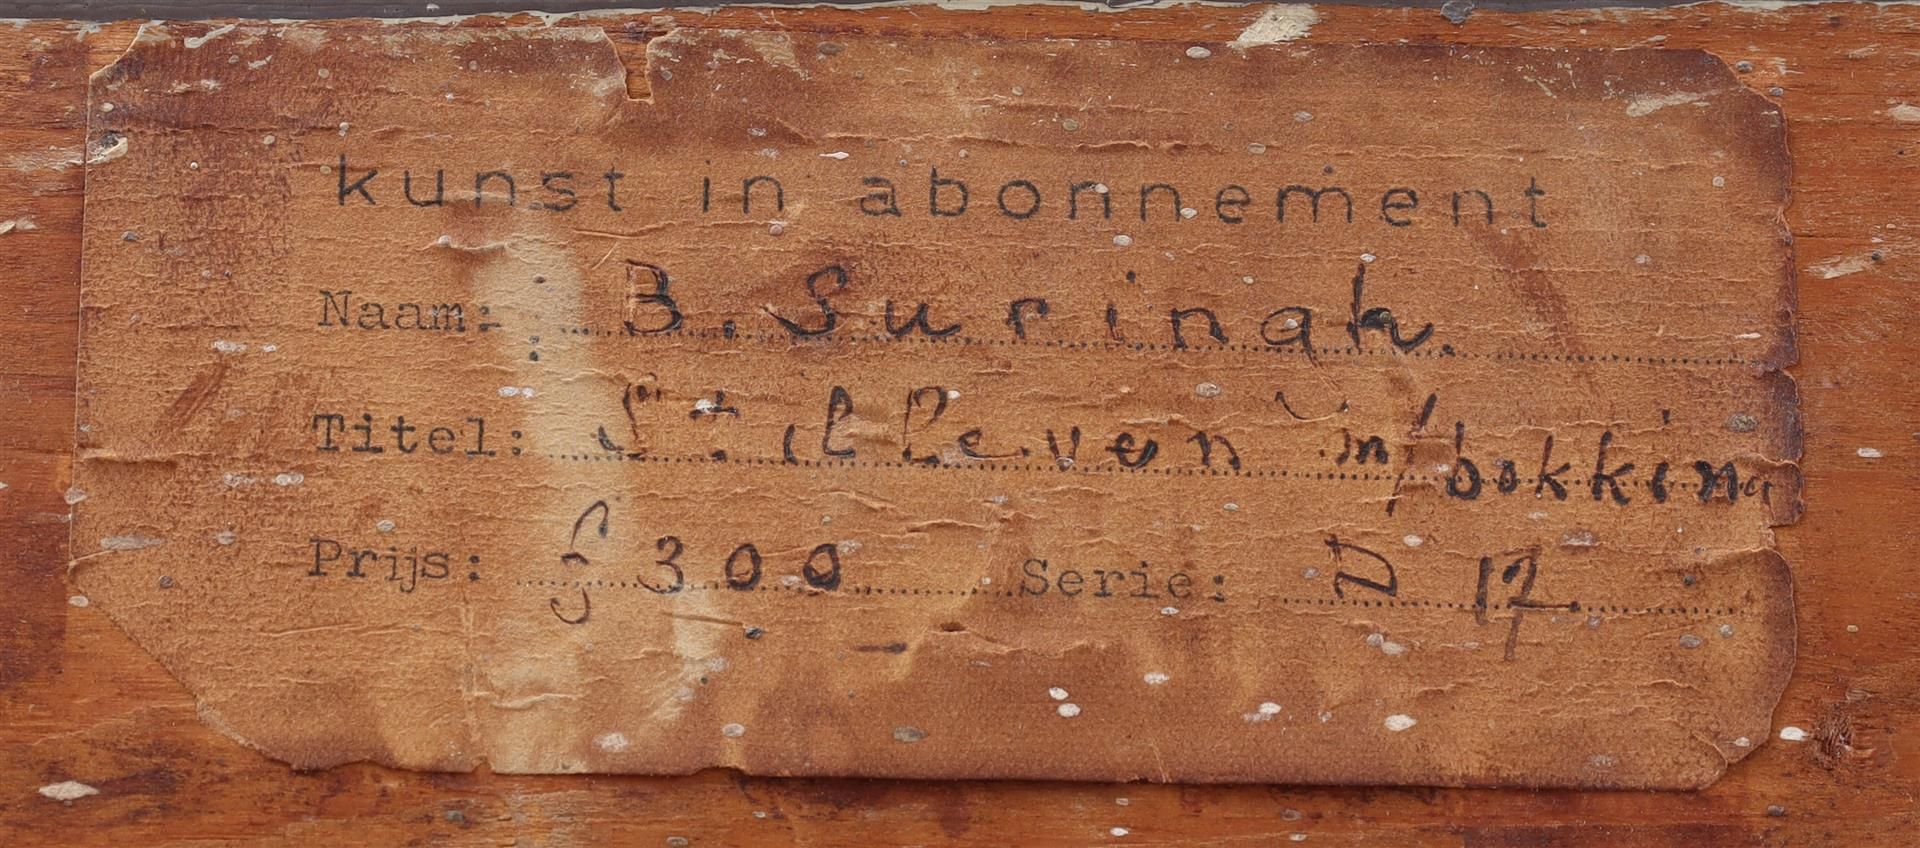 kunst in abonnement
Naam: B. Suringh.
Titel: Stilleven m/ bokking
Prijs: f 300 Serie: D 17